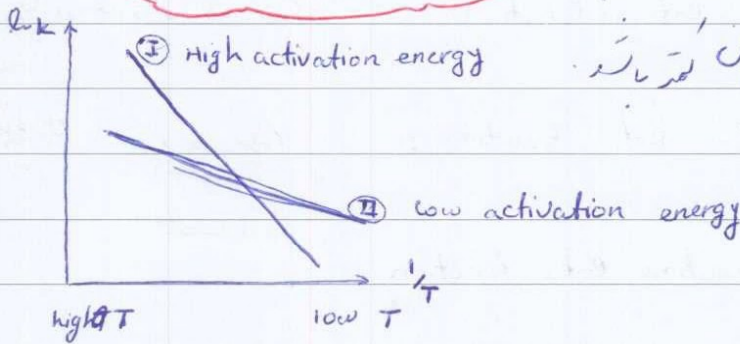 ln k
Ⓘ High activation energy
کمتر باشد.
Ⅱ Low activation energy
1/T
high T
low T